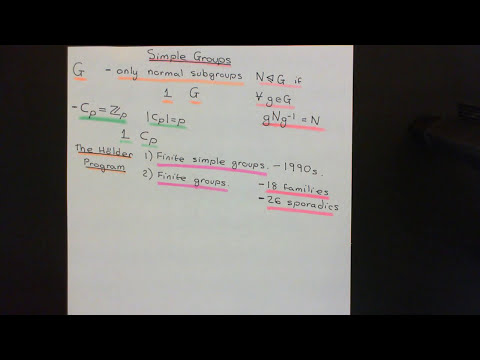 Simple Groups
G - only normal subgroups N ⊲ G if
1 G ∀ g∈G
- Cₚ = ℤₚ |Cₚ| = p gNg⁻¹ = N
1 Cₚ
The Hölder Program
1) Finite simple groups. - 1990s.
2) Finite groups. - 18 families
- 26 sporadics